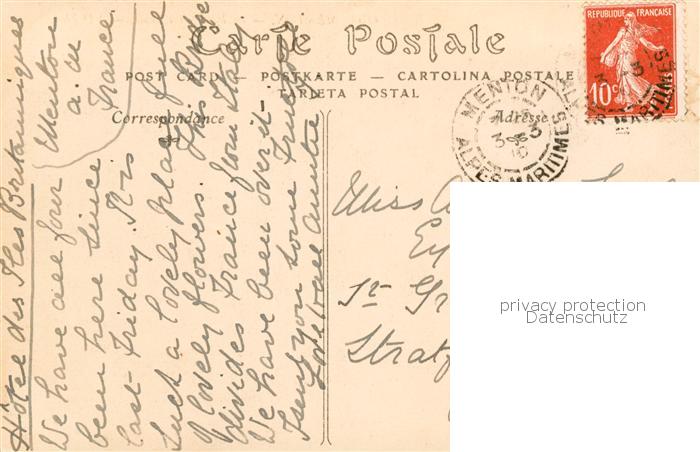 Carte Postale
POST CARD — POSTKARTE — CARTOLINA POSTALE
TARJETA POSTAL
Correspondance
Adresse
REPUBLIQUE FRANÇAISE
10c
MENTON
3-3
10
ALPES MARITIMES
Hôtel des Iles Britanniques
Menton
A. M
France
We have all four
been here since
last Friday. It is
such a lovely place full
of lovely flowers. This Bridge
divides France from Italy
We have been over it.
I send you some
Love
Miss
St
privacy protection
Datenschutz